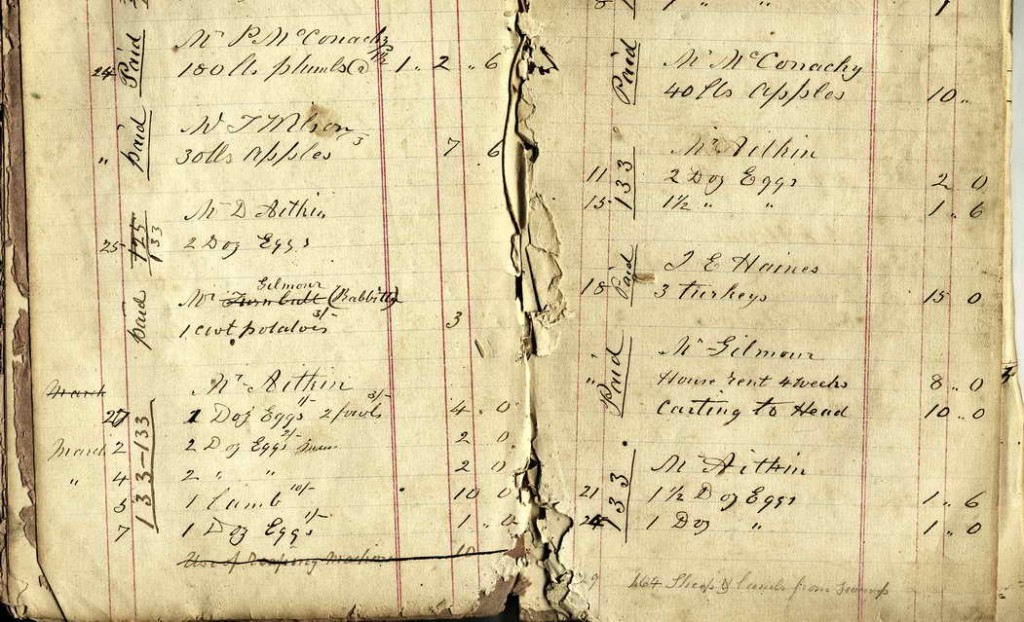 Paid
Mr P McConachy
24 180 lbs plumbs @ 1 1/2 1 " 2 " 6
Paid
Mr T Wilson
" 30 lbs apples 3 7 6
125
133
Mr D Aitkin
25 2 Doz Eggs
Paid
Gilmour
Mr Turnbull (Rabbitts)
1 cwt potatoes 3/- 3
March Mr Aitkin
133-133
27 1 Doz Eggs 1/- 2 fowls 3/- 4 " 0
March 2 2 Doz Eggs 2/- 2 0
" 4 2 " " 2 0
5 1 Lamb 10/- 10 0
7 1 Doz Eggs 1/- 1 " 0
Use of Reaping Machine 10
" " 1
Paid
Mr McConachy
40 lbs apples 10 "
133
Mr Aitkin
11 2 Doz Eggs 2 0
15 1½ " " 1 " 6
Paid
J E Haines
18 3 turkeys 15 0
Paid
Mr Gilmour
" House rent 4 weeks 8 " 0
Carting to Head 10 " 0
133
Mr Aitkin
21 1½ Doz Eggs 1 " 6
24 1 Doz " 1 " 0
29 264 Sheep & lambs from